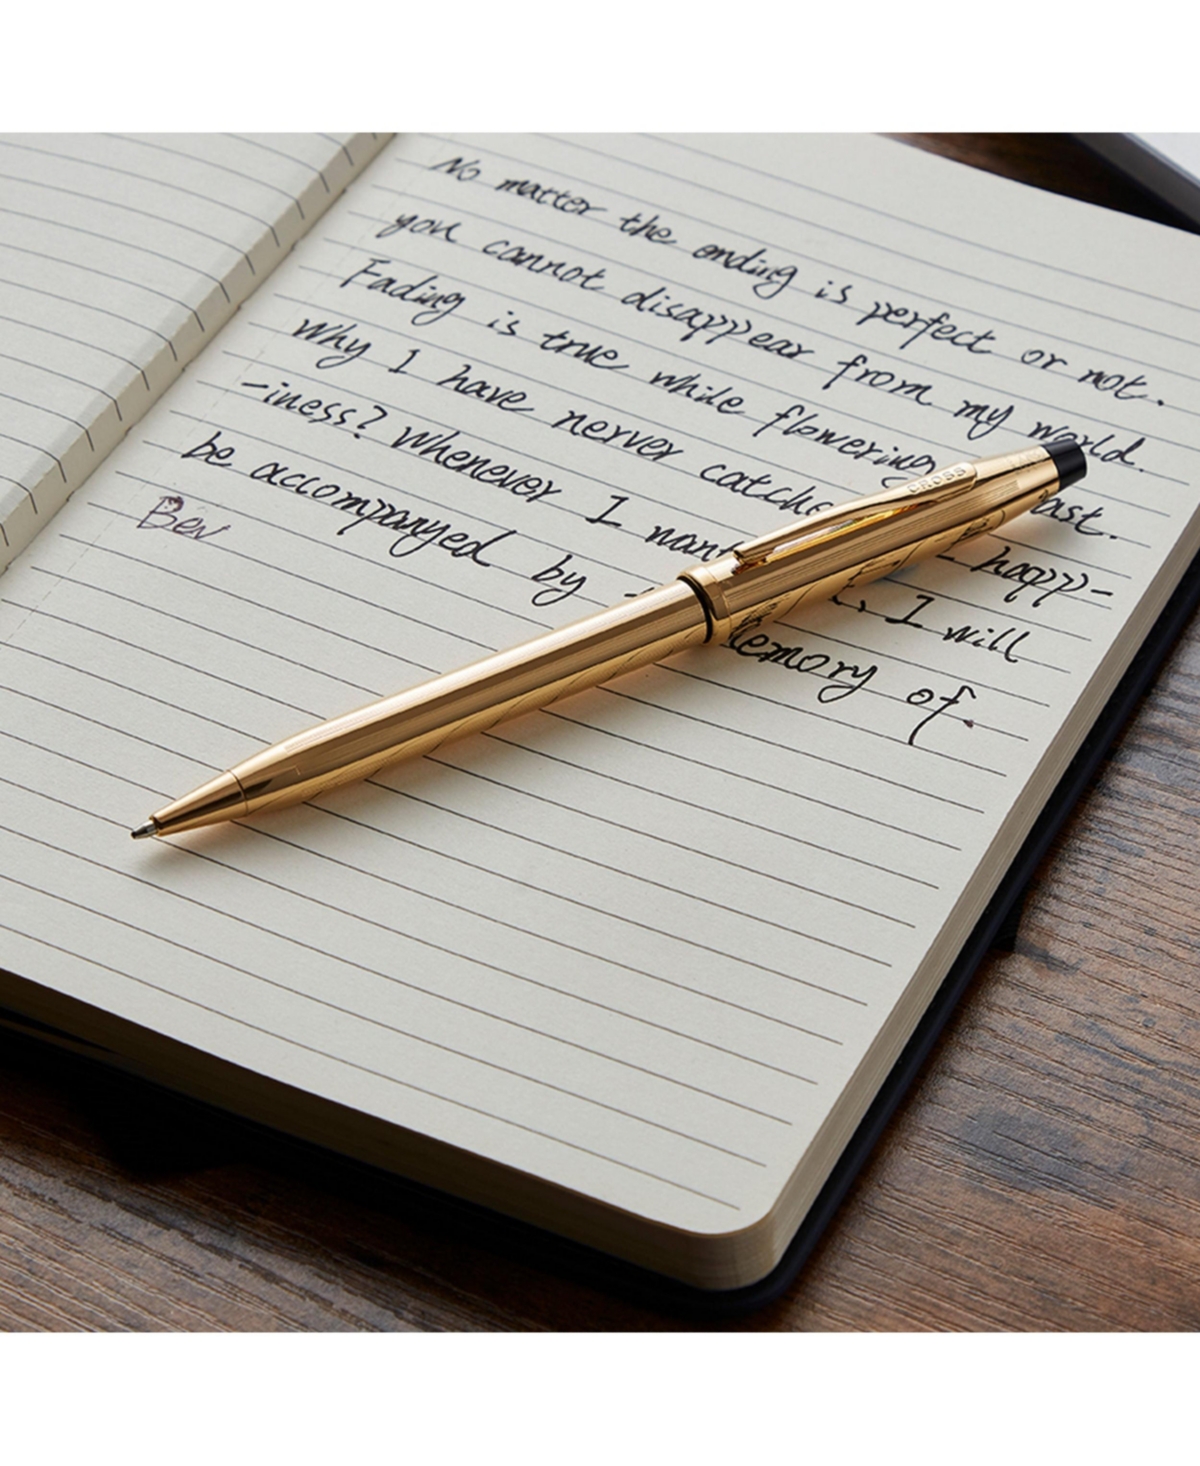 No matter the ending is perfect or not.
you cannot disappear from my world.
Fading is true while flowering past.
Why I have nerver catche happ-
-iness? Whenever I want I will
be accompanyed by memory of.
Ben
CROSS